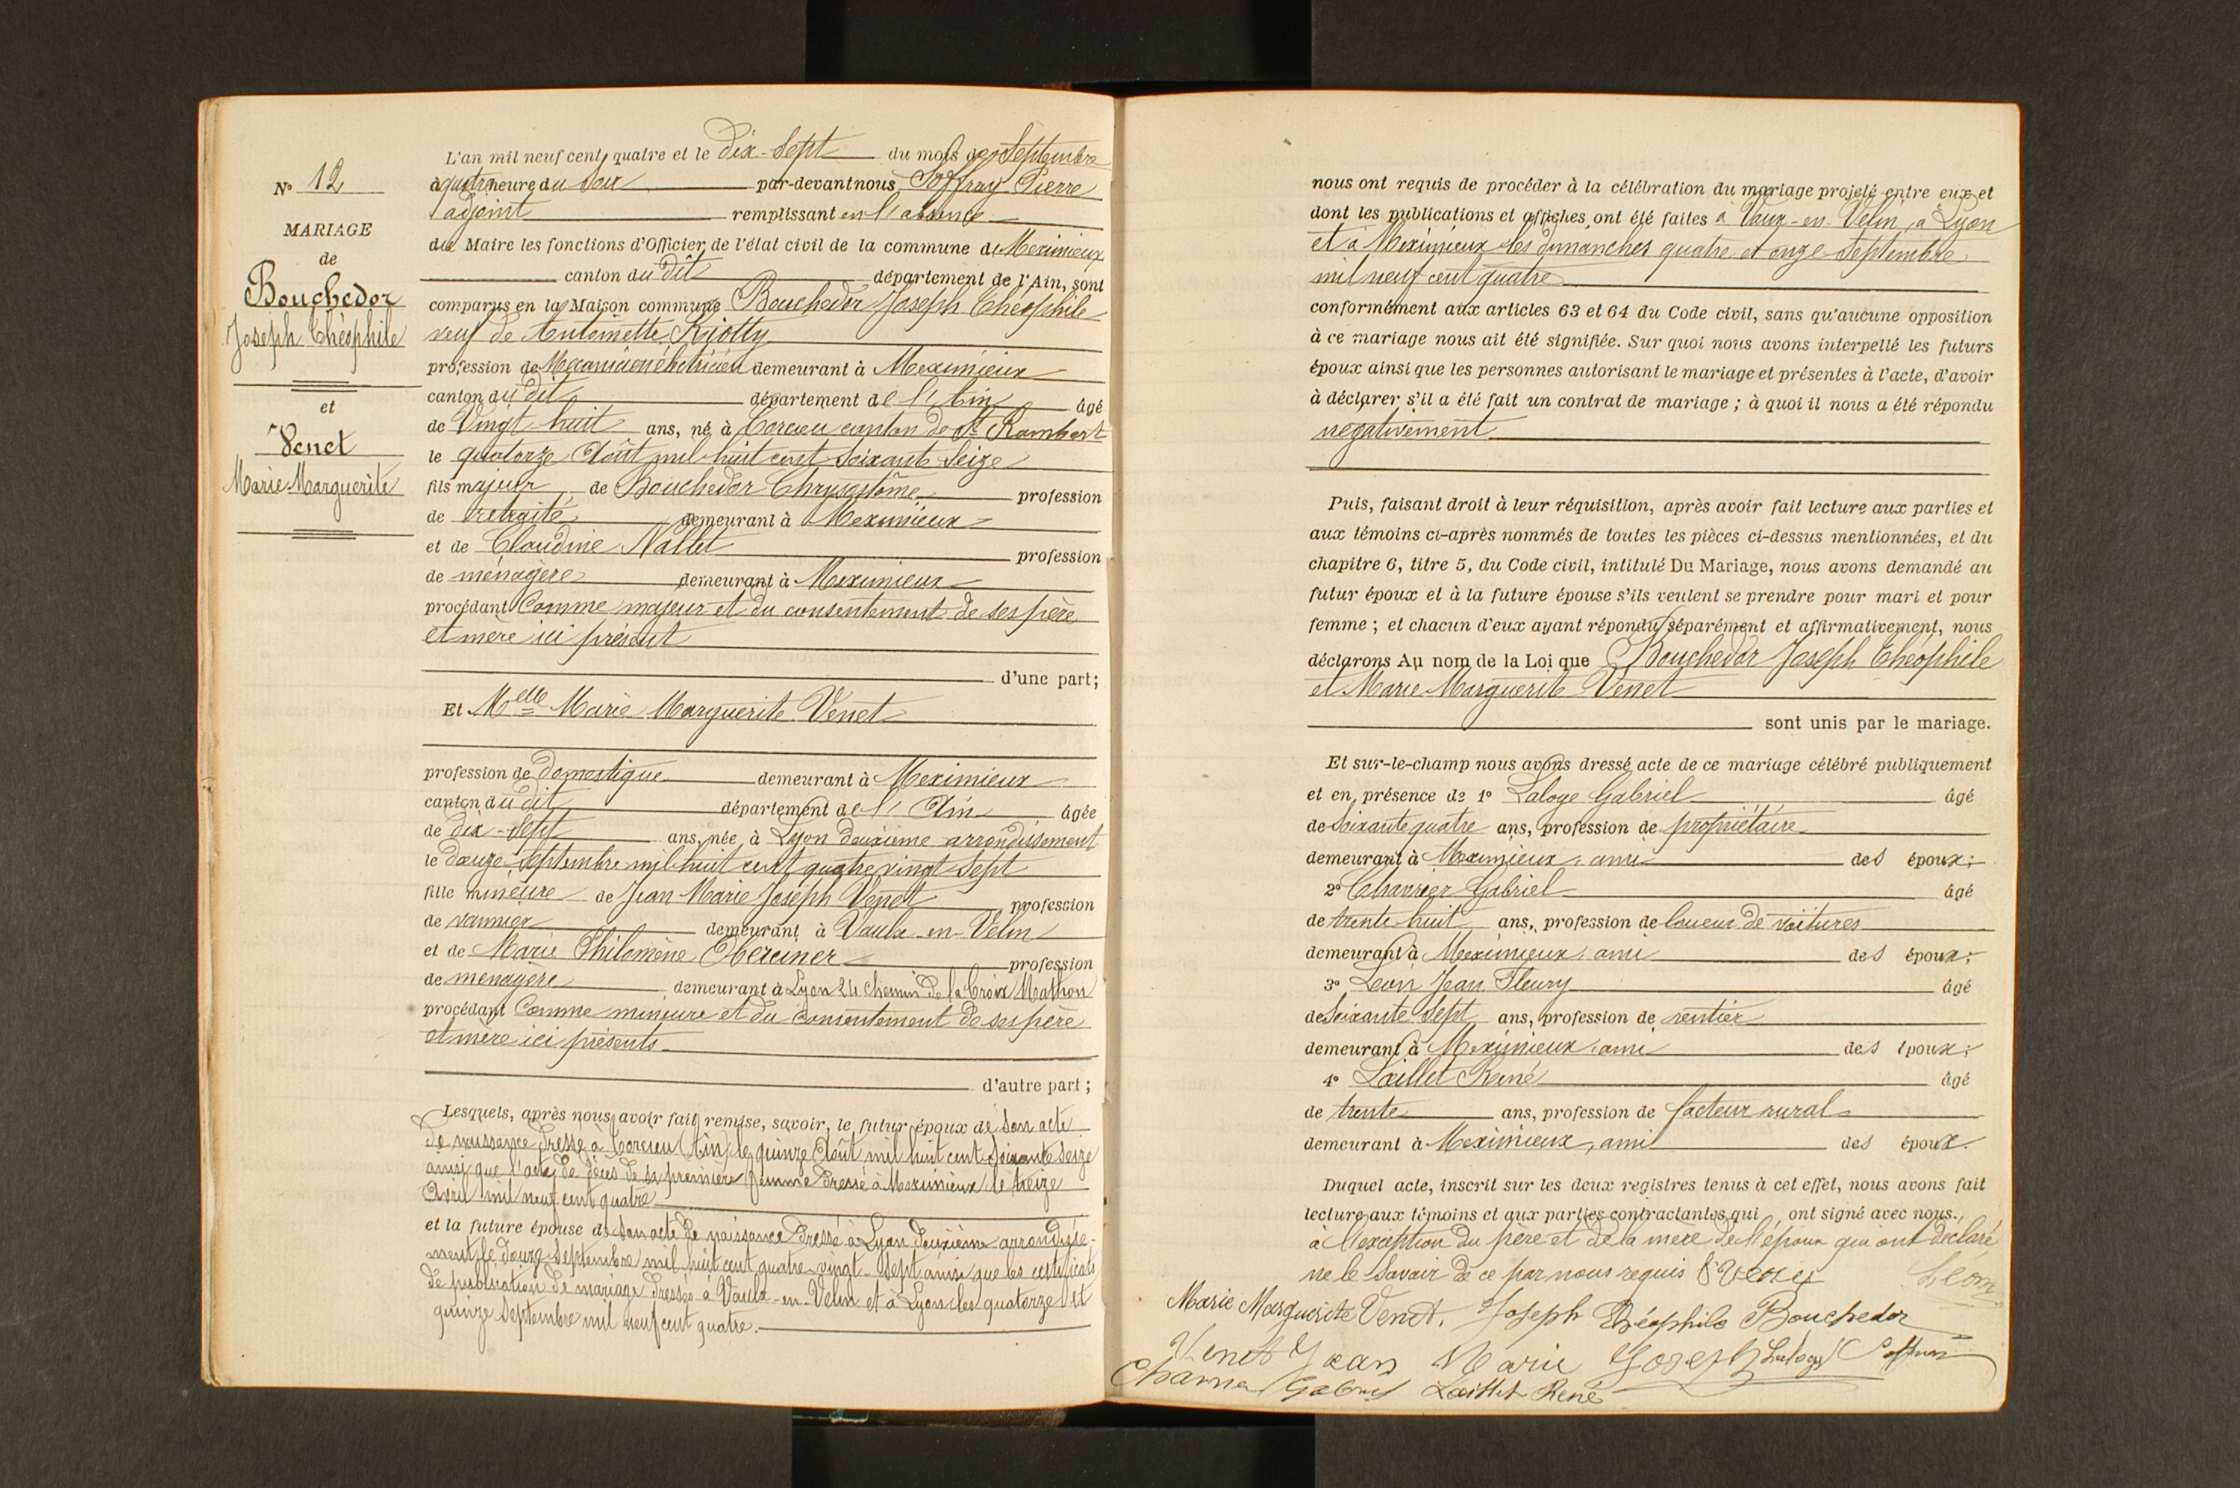 N° 12
MARIAGE
de
Bouchedor
Joseph Théophile
et
Venet
Marie Marguerite
L'an mil neuf cent quatre et le dix-sept du mois de Septembre
à quatre heure du soir par-devant nous, Soffray Pierre
adjoint remplissant en l'absence
du Maire les fonctions d'Officier de l'état civil de la commune de Meximieux
canton du dit département de l'Ain, sont
comparus en la Maison commune Bouchedor Joseph Théophile
veuf de Antoinette Rjotty
profession de Mécanicien électricien demeurant à Meximieux
canton du dit département de l'Ain âgé
de Vingt huit ans, né à Corcieu canton de St Rambert
le quatorze Août mil huit cent soixante seize
fils majeur de Bouchedor Chrysostôme profession
de retraité demeurant à Meximieux
et de Claudine Nallet profession
de ménagère demeurant à Meximieux
procédant Comme majeur et du consentement de ses père
et mère ici présent
d'une part;
Et Melle Marie Marguerite Venet
profession de domestique demeurant à Meximieux
canton du dit département de l'Ain âgée
de dix-sept ans, née à Lyon deuxième arrondissement
le douze Septembre mil huit cent quatre vingt sept
fille mineure de Jean Marie Joseph Venet profession
de vannier demeurant à Vaulx-en-Velin
et de Marie Philomène profession
de menagère demeurant à Lyon 24 chemin de la Croix Mathon
procédant Comme mineure et du consentement de ses père
et mère ici présents
d'autre part;
Lesquels, après nous avoir fait remise, savoir, le futur époux de son acte
de naissance dressé à Corcieu (Ain) le quinze Août mil huit cent soixante seize
ainsi que l'acte de décès de sa première femme dressé à Meximieux le treize
Avril mil neuf cent quatre
et la future épouse de son acte de naissance dressé à Lyon deuxième arrondisse-
ment le douze Septembre mil huit cent quatre-vingt-sept ainsi que les certificats
de publication de mariage dressés à Vaulx-en-Velin et à Lyon les quatorze et
quinze Septembre mil neuf cent quatre.
nous ont requis de procéder à la célébration du mariage projeté entre eux et
dont les publications et affiches ont été faites à Vaux-en-Velin, à Lyon
et à Meximieux les dimanches quatre et onze Septembre
mil neuf cent quatre
conformément aux articles 63 et 64 du Code civil, sans qu'aucune opposition
à ce mariage nous ait été signifiée. Sur quoi nous avons interpellé les futurs
époux ainsi que les personnes autorisant le mariage et présentes à l'acte, d'avoir
à déclarer s'il a été fait un contrat de mariage; à quoi il nous a été répondu
negativement
Puis, faisant droit à leur réquisition, après avoir fait lecture aux parties et
aux témoins ci-après nommés de toutes les pièces ci-dessus mentionnées, et du
chapitre 6, titre 5, du Code civil, intitulé Du Mariage, nous avons demandé au
futur époux et à la future épouse s'ils veulent se prendre pour mari et pour
femme; et chacun d'eux ayant répondu séparément et affirmativement, nous
déclarons Au nom de la Loi que Bouchedor Joseph Théophile
et Marie Marguerite Venet
sont unis par le mariage.
Et sur-le-champ nous avons dressé acte de ce mariage célébré publiquement
et en présence de 1° Laloge Gabriel âgé
de soixante quatre ans, profession de propriétaire
demeurant à Meximieux, ami des époux;
2° Charrier Gabriel âgé
de trente-huit ans, profession de loueur de voitures
demeurant à Meximieux, ami des époux;
3° Léon Jean Fleury âgé
de soixante sept ans, profession de rentier
demeurant à Meximieux, ami des époux;
4° Laillet René âgé
de trente ans, profession de facteur rural
demeurant à Meximieux, ami des époux.
Duquel acte, inscrit sur les deux registres tenus à cet effet, nous avons fait
lecture aux témoins et aux parties contractantes qui ont signé avec nous.,
à l'exception du père et de la mère de l'époux qui ont déclaré
ne le savoir de ce par nous requis Léon
Marie Marguerite Venet. Joseph Théophile Bouchedor
Venet Jean Marie Joseph Laloge Soffray
Charrier Gabriel Laillet René